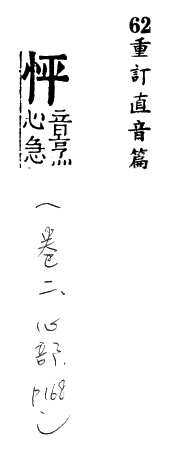 62重訂直音篇
怦
音烹
心急
(卷二、心部、p168)